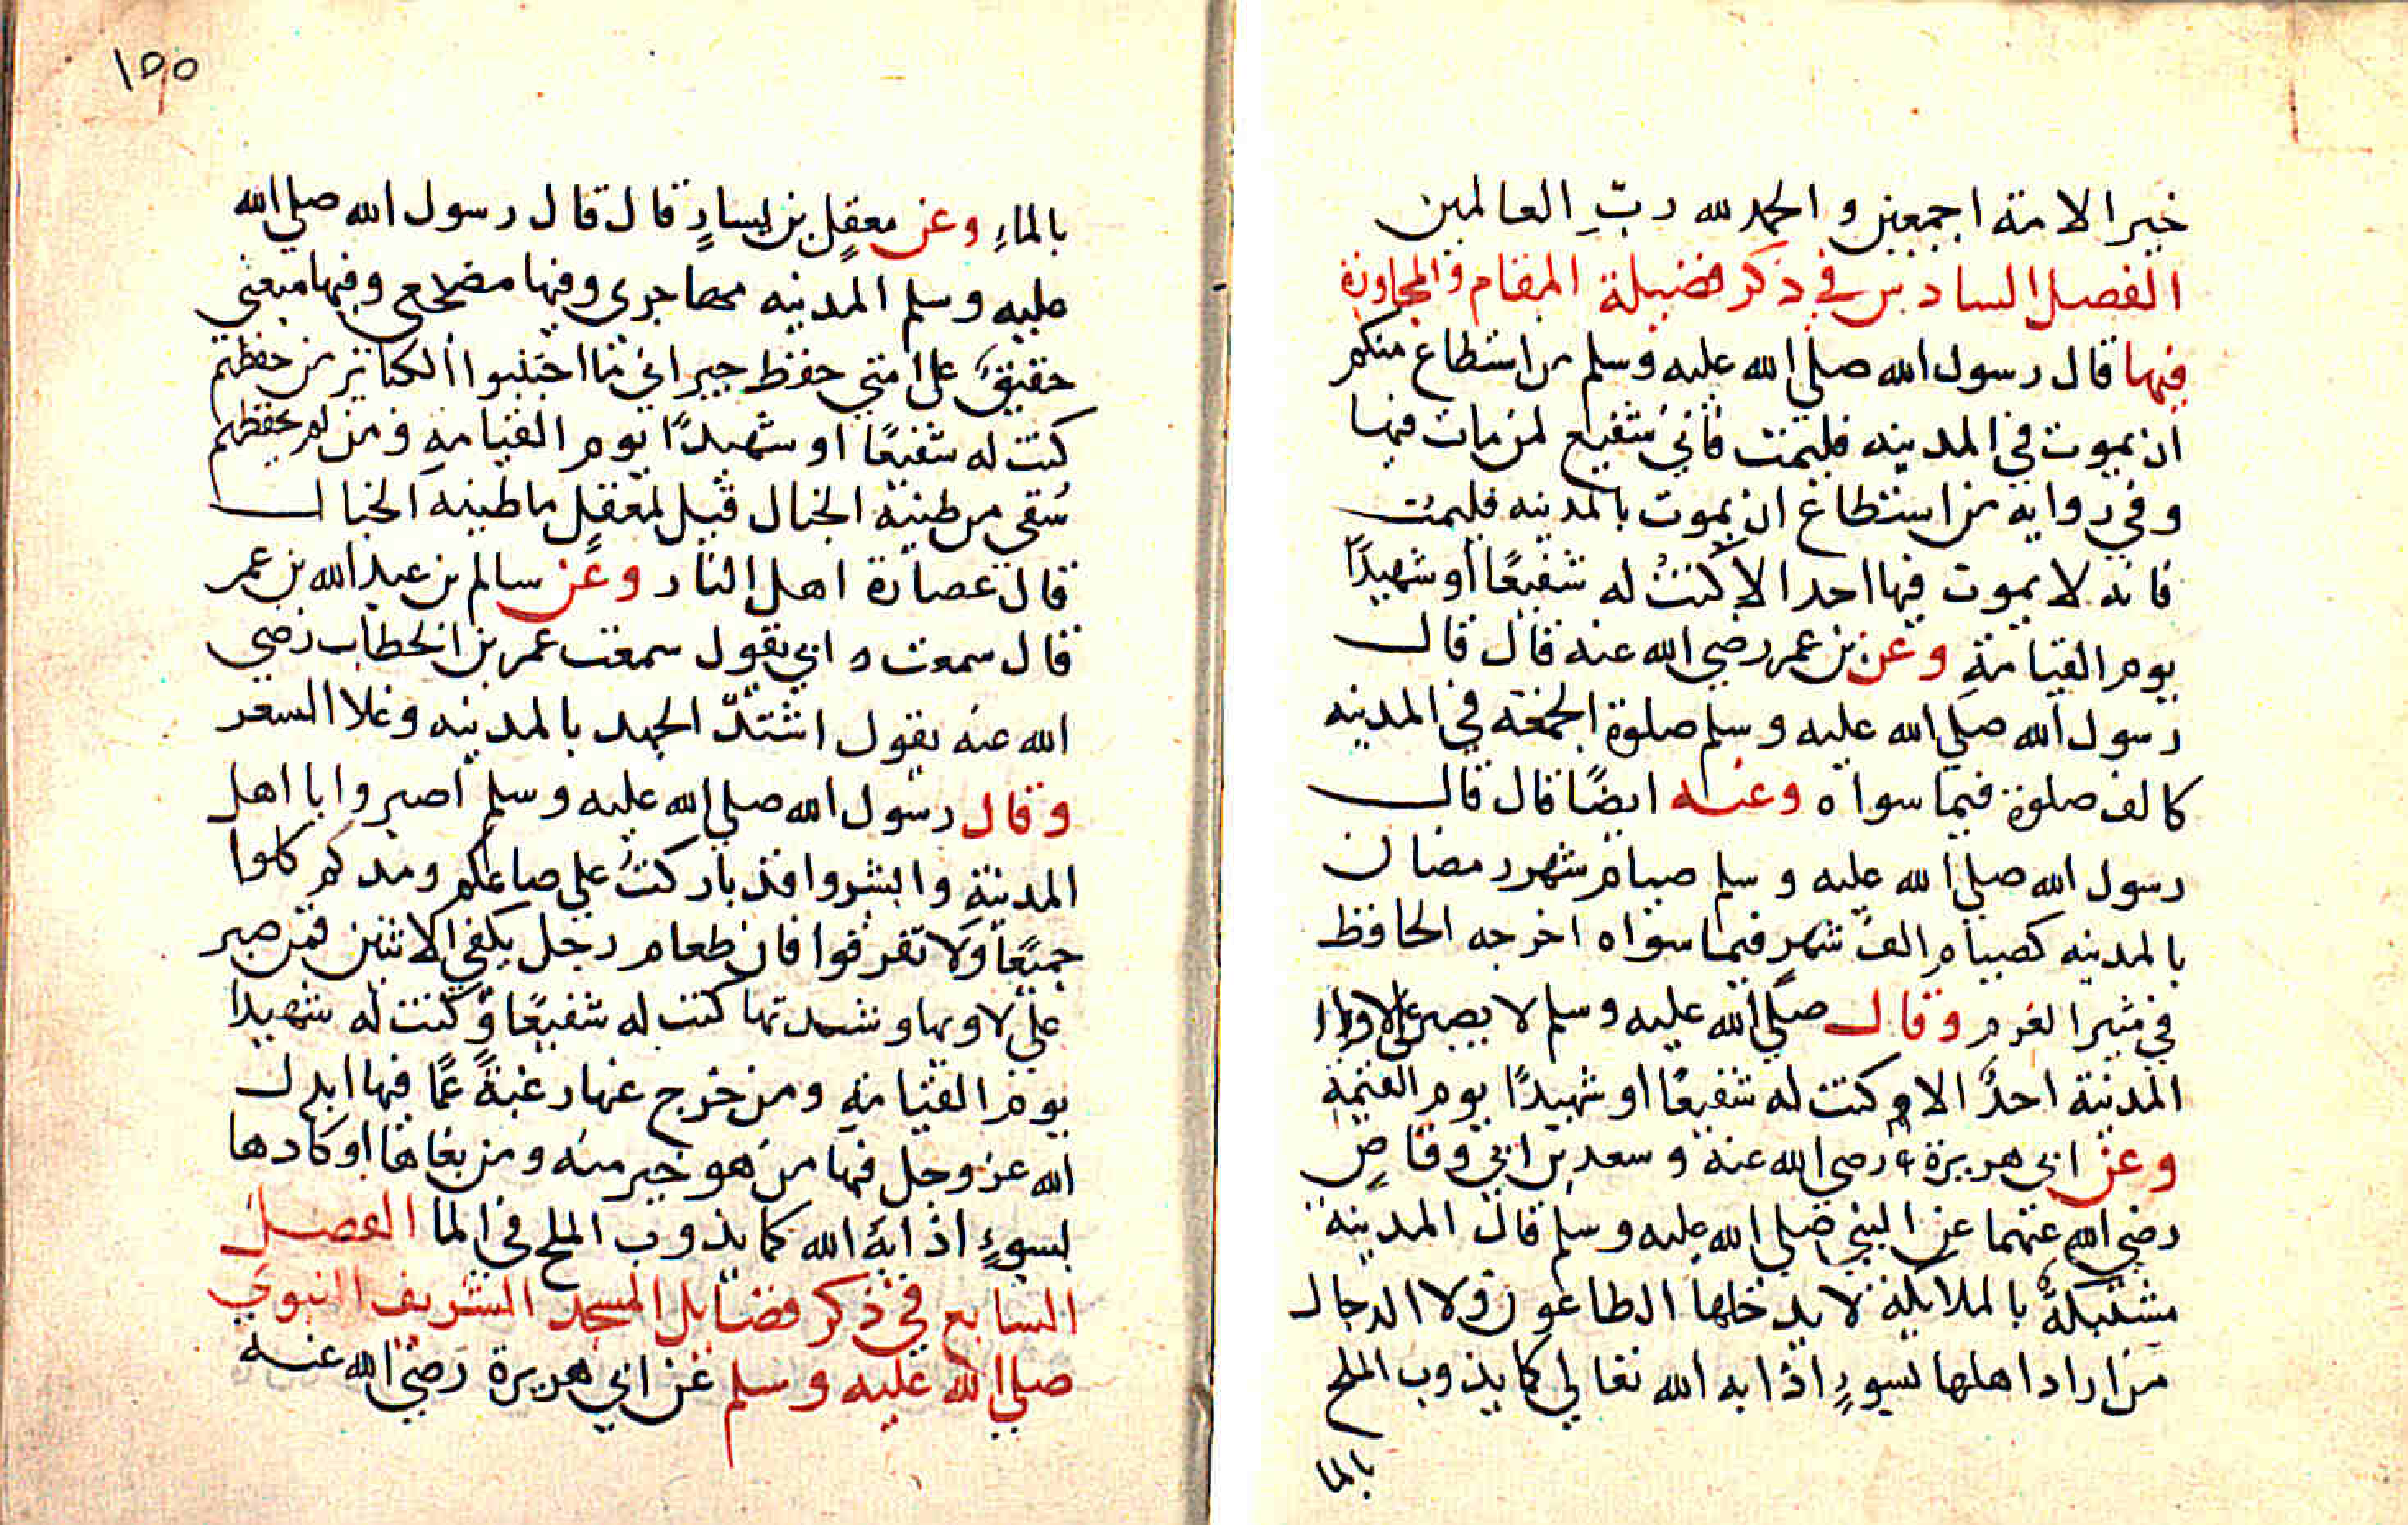 خير الامة اجمعين والحمد لله ربّ العالمين
الفصل السادس في ذكر فضيلة المقام والمجاورة
فيها قال رسول الله صلي الله عليه وسلم من استطاع منكم
ان يموت في المدينه فليمت فاني شفيع لمن مات فيها
وفي روايه من استطاع ان يموت بالمدينه فليمت
فانه لا يموت فيها احد الا كنتُ له شفيعًا او شهيدًا
يوم القيامةِ وعن بن عمر رضي الله عنه قال قال
رسول الله صلي الله عليه وسلم صلوة الجمعة في المدينه
كالف صلوة فيما سواه وعنه ايضًا قال قال
رسول الله صلي الله عليه وسلم صيام شهر رمضان
بالمدينه كصيام الف شهر فيما سواه اخرجه الحافظ
في مثير الغرم وقال صلي الله عليه وسلم لا يصبر علي لاواء
المدينة احدٌ الا وكنت له شفيعًا او شهيدًا يوم القيمة
وعن ابي هريرة رضي الله عنه وسعد بن ابي وقاصٍ
رضي الله عنهما عن النبي صلي الله عليه وسلم قال المدينة
مشتبكةٌ بالملايكة لا يدخلها الطاعون ولا الدجال
من اراد اهلها بسوءٍ اذابه الله تعالي كما يذوب الملح
بالما
١٥٥
بالماءِ وعن معقلٍ بن يسارٍ قال قال رسول الله صلي الله
عليه وسلم المدينه مهاجري وفيها مضجعي وفيها مبعثي
حقيقٌ علي امتي حفظ جيراني ما اجتنبوا الكبائر من حفظهم
كنت له شفيعًا او شهيدًا يوم القيامةِ ومن لم يحفظهم
سُقي من طينة الخبال قيل لمعقلٍ ما طينة الخبال
قال عصارة اهل النار وعن سالم بن عبد الله بن عمر
قال سمعت ابي يقول سمعت عمر بن الخطاب رضي
الله عنه يقول اشتدّ الجهد بالمدينه وغلا السعر
وقال رسول الله صلي الله عليه وسلم اصبروا يا اهل
المدينةِ وابشروا فقد باركتُ علي صاعكم ومدكم كلوا
جميعًا ولا تفرقوا فان طعام رجل يكفي الاثنين فمن صبر
علي لاوبها وشدتها كنت له شفيعًا وكنت له شهيدًا
يوم القيامةِ ومن خرج عنها رغبةً عمّا فيها ابدل
الله عز وجل فيها من هو خير منه ومن بغاها او كادها
بسوءٍ اذابهُ الله كما يذوب الملح في الما الفصل
السابع في ذكر فضايل المسجد الشريف النبوي
صلي الله عليه وسلم عن ابي هريرة رضي الله عنه